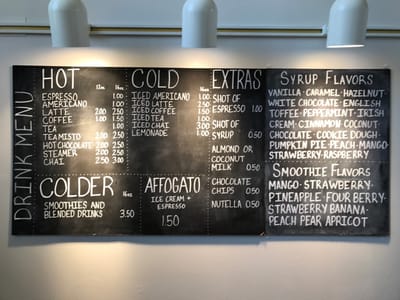 DRINK MENU
HOT 12oz 16oz
ESPRESSO 1.00
AMERICANO 1.00
LATTE 2.00 2.50
COFFEE 1.00
TEA 1.00
TEA MISTO 2.00 2.50
HOT CHOCOLATE 2.00 2.50
STEAMER 2.00 2.50
CHAI 2.50 3.00
COLD 16oz
ICED AMERICANO 1.00
ICED LATTE 2.50
ICED COFFEE
ICED TEA
ICED CHAI 3.00
LEMONADE 1.00
EXTRAS
SHOT OF
ESPRESSO 1.00
SHOT OF
SYRUP 0.50
ALMOND OR
COCONUT
MILK 0.50
CHOCOLATE
CHIPS 0.50
NUTELLA 0.50
COLDER 16oz
SMOOTHIES AND
BLENDED DRINKS 3.50
AFFOGATO
ICE CREAM +
ESPRESSO
1.50
SYRUP FLAVORS
VANILLA · CARAMEL · HAZELNUT
WHITE CHOCOLATE · ENGLISH
TOFFEE · PEPPERMINT · IRISH
CREAM · CINNAMON · COCONUT
CHOCOLATE · COOKIE DOUGH ·
PUMPKIN PIE · PEACH · MANGO ·
STRAWBERRY · RASPBERRY
SMOOTHIE FLAVORS
MANGO · STRAWBERRY ·
PINEAPPLE · FOUR BERRY ·
STRAWBERRY BANANA ·
PEACH PEAR APRICOT